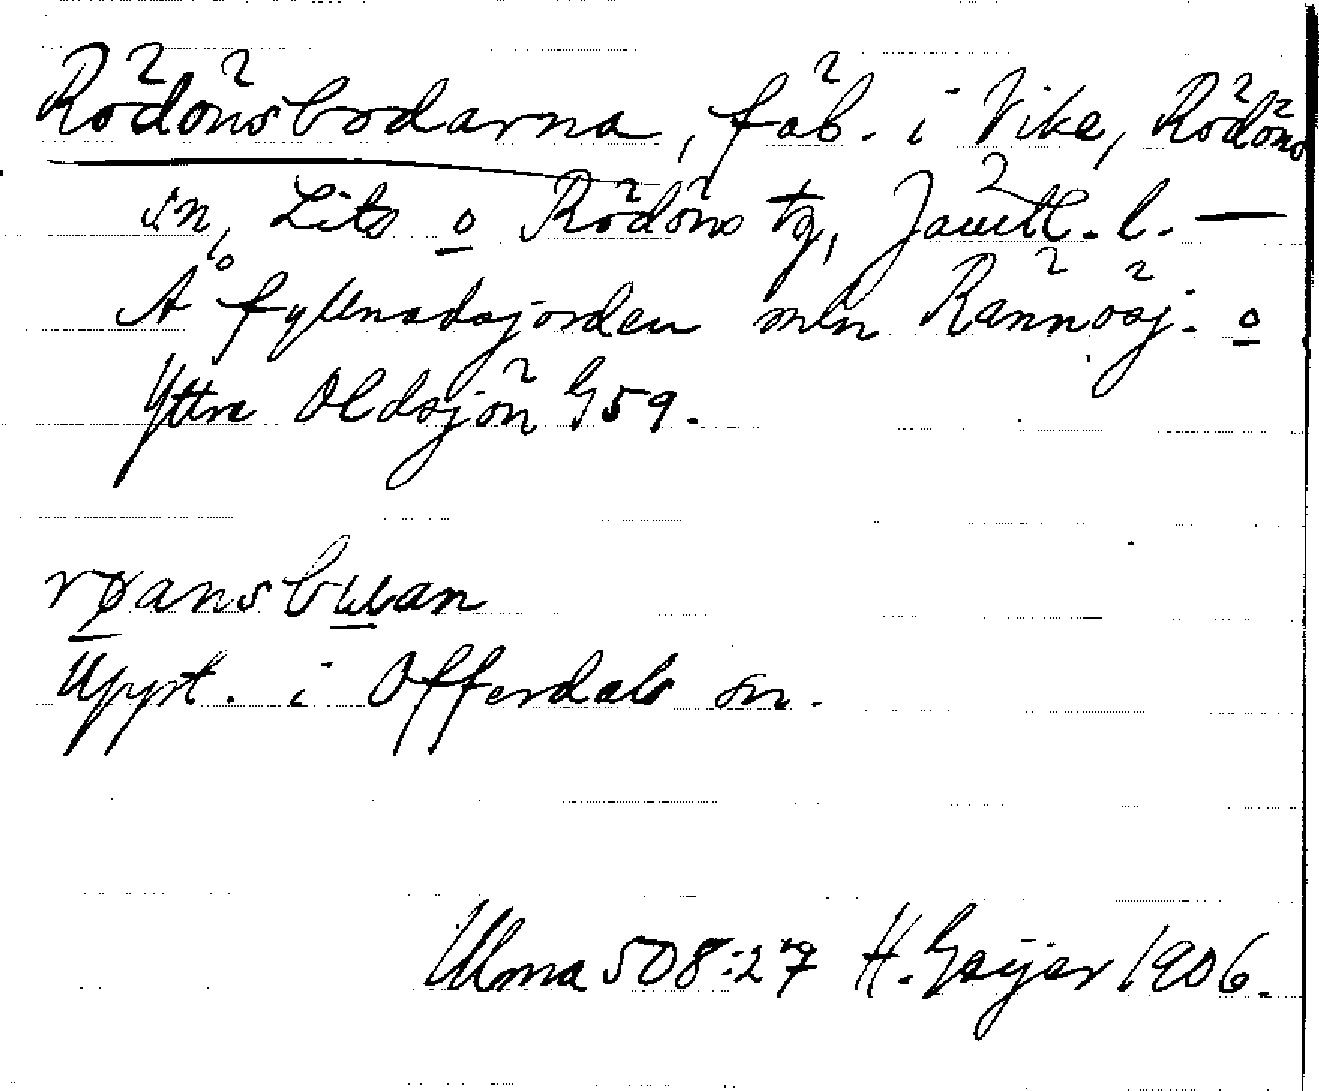 Rödönsbodarna, fäb. i Vike, Rödöns
sn, Lits o Rödöns tg, Jämtl. l. —
Å fyllnadsjorden mln Rännösj. o
Yttre Oldsjön G59.
røansbuan
Uppt. i Offerdals sn.
Ulma 508:27 H. Geijer 1906.